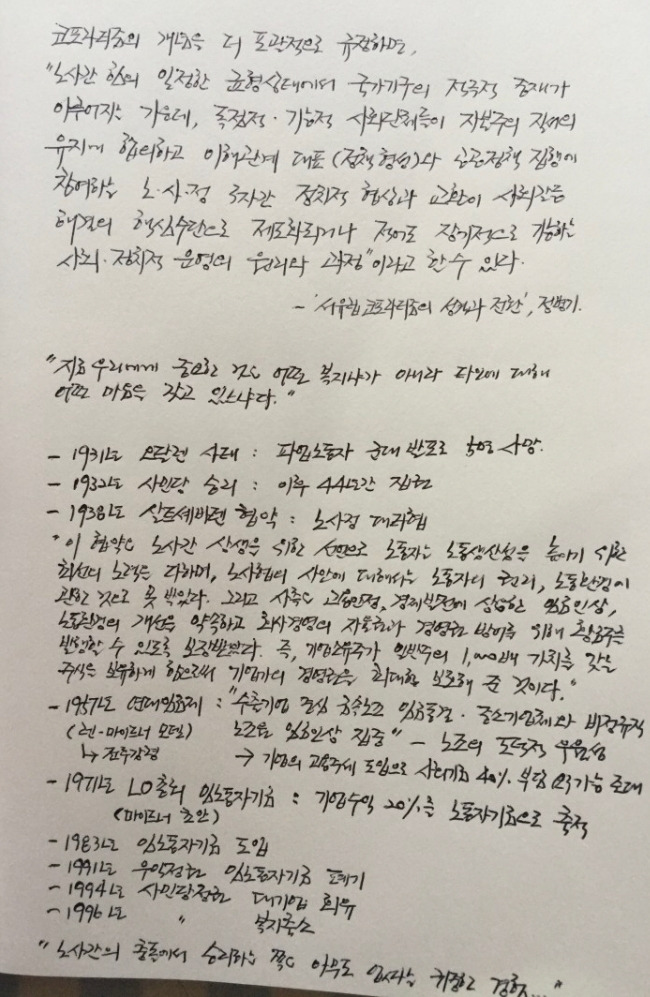 코포라티즘의 개념을 더 포괄적으로 규정하면,
"노사간 힘의 일정한 균형상태에서 국가기구의 적극적 중재가
이루어지는 가운데, 독점적·기능적 사회단체들이 자본주의 질서의
유지에 합의하고 이해관계 대표(정책형성)와 공공정책 집행에
참여하는 노·사·정 3자간 정치적 협상과 교환이 사회갈등
해결의 핵심수단으로 제도화되거나 적어도 장기적으로 기능하는
사회·정치적 운영의 원리와 과정"이라고 할 수 있다.
- '서유럽 코포라티즘의 성격과 전환', 정병기.
"지금 우리에게 중요한 것은 어떤 복지냐가 아니라 타인에 대해
어떤 마음을 갖고 있느냐다."
- 1931년 오달렌 사태 : 파업노동자 군대 발포로 5명 사망.
- 1932년 사민당 승리 : 이후 44년간 집권
- 1938년 살트셰바덴 협약 : 노사정 대타협
"이 협약은 노사간 상생을 위한 선언으로 노동자는 노동생산성을 높이기 위한
최선의 노력을 다하며, 노사협의 사안에 대해서는 노동자의 권리, 노동환경에
관한 것으로 못 박았다. 그리고 사측은 고용안정, 경제발전에 상응한 임금인상,
노동환경의 개선을 약속하고 회사경영의 자율권과 경영권 방어를 위해 황금주를
발행할 수 있도록 보장받았다. 즉, 기업소유주가 일반주의 1,000배 가치를 갖는
주식을 보유하게 함으로써 기업가의 경영권을 최대한 보호해 준 것이다."
- 1957년 연대임금제 : "수출기업 중심 금속노조 임금동결·중소기업체와 비정규직
(렌-마이드너 모델) 노조원 임금인상 집중" - 노조의 도덕적 우월성
↳ 전투감행 → 기업의 고용주세 도입으로 사회기금 40% 부담 요구가능 초대
- 1971년 LO총회 임노동자기금 : 기업수익 20%를 노동자기금으로 축적
(마이드너 초안)
- 1983년 임노동자기금 도입
- 1991년 우익정권 임노동자기금 폐기
- 1994년 사민당정권 대기업 회유
- 1996년 " 복지축소
"노사간의 충돌에서 승리하는 쪽은 아무도 없다는 귀중한 경험..."